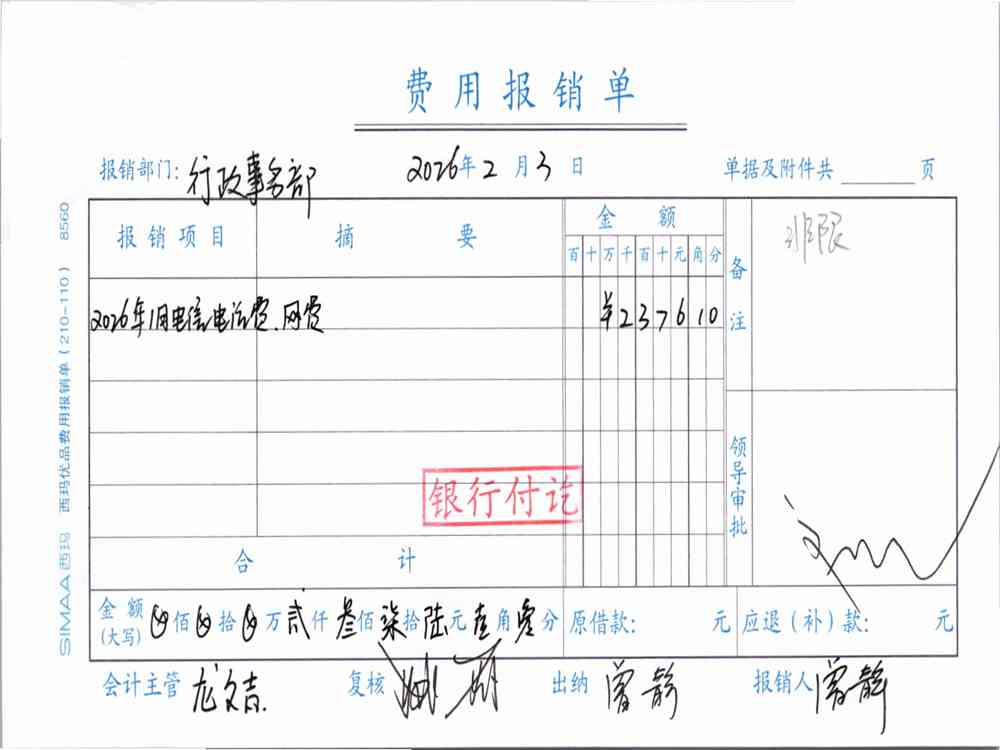 费用报销单
报销部门: 行政事务部 2026年2月3日 单据及附件共 页
报销项目 摘要 金额 备注
百十万千百十元角分
非限
2026年1月电信电话费、网费 ¥237610
领导审批
银行付讫
合计
金额(大写) 佰 拾 万贰仟叁佰柒拾陆元壹角零分 原借款: 元 应退(补)款: 元
会计主管 龙文吉 复核 出纳 曾静 报销人 曾静
SIMAA西玛 西玛优品费用报销单(210-110) 8560